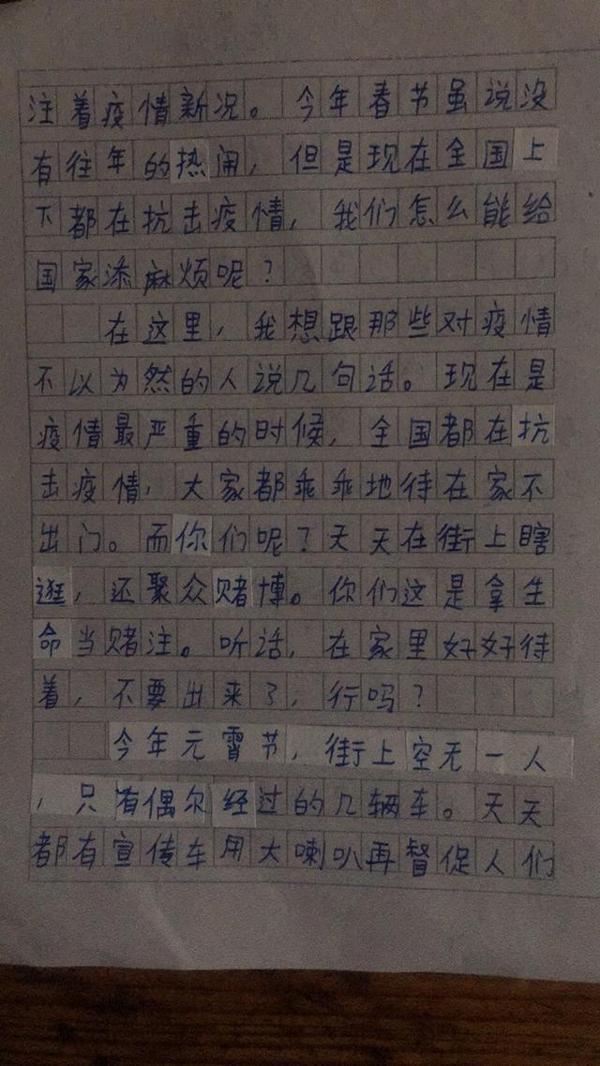 注着疫情新况。今年春节虽说没
有往年的热闹，但是现在全国上
下都在抗击疫情，我们怎么能给
国家添麻烦呢？
在这里，我想跟那些对疫情
不以为然的人说几句话。现在是
疫情最严重的时候，全国都在抗
击疫情，大家都乖乖地待在家不
出门。而你们呢？天天在街上瞎
逛，还聚众赌博。你们这是拿生
命当赌注。听话，在家里好好待
着，不要出来了，行吗？
今年元宵节，街上空无一人
，只有偶尔经过的几辆车。天天
都有宣传车用大喇叭再督促人们